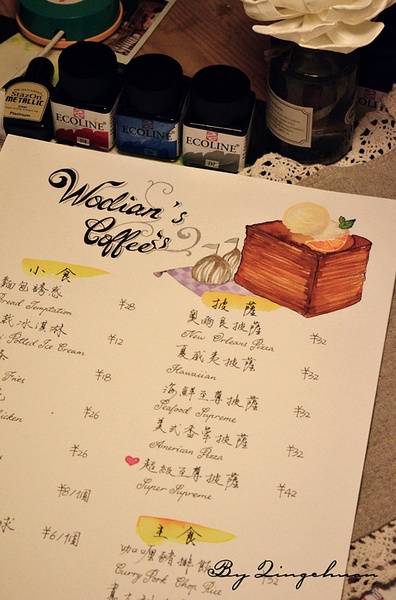 StazOn
METALLIC
Platinum
ECOLINE
ECOLINE
ECOLINE
Wodian's
Coffee's
小食
麵包誘惑
Bread Temptation ¥28
栽冰淇淋
Potted Ice Cream ¥12
Fries ¥18
Chicken ¥26
¥26
¥8/個
球 ¥6/個
披薩
奧爾良披薩
New Orleans Pizza ¥32
夏威夷披薩
Hawaiian ¥32
海鮮至尊披薩
Seafood Supreme ¥32
美式香暈披薩
American Pizza ¥32
超級至尊披薩
Super Supreme ¥42
主食
咖喱豬排飯
Curry Pork Chop Rice ¥32
By Qingchuan